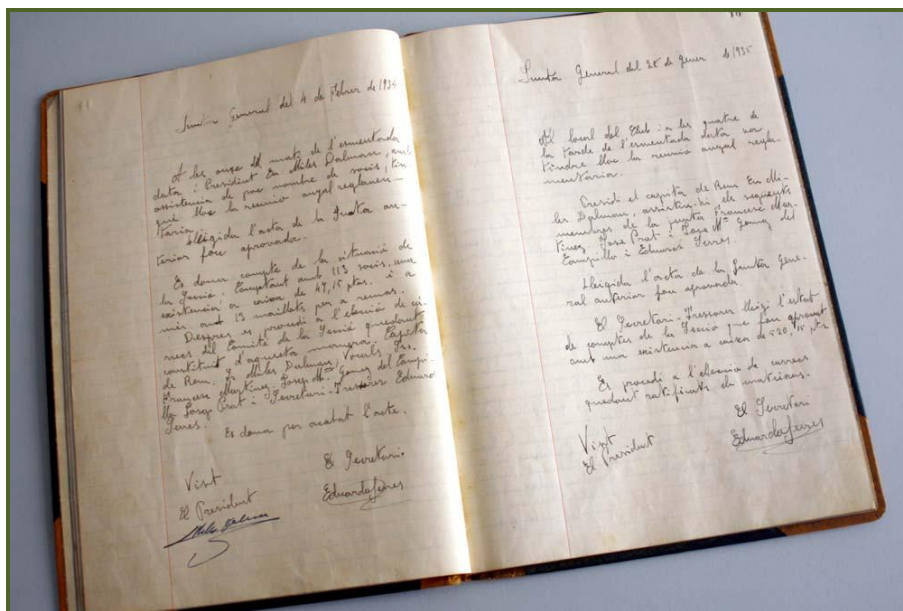 Junta General del 4 de Febrer de 1934
A les onze del matí de l'esmentada
data i President En Miles Dalmau, amb
assistencia de poc nombre de socis, tin
gué lloc la reunió anyal reglamen-
taria.
Lleigida l'acta de la Junta an-
terior fou aprovada.
Es donar compte de la situació de
la Secció, comptant amb 113 socis, una
existencia a caixa de 47,15 ptes. i a
més amb 13 maillots per a remar.
Despres es procedí a l'elecció de cà-
rrecs del Comité de la Secció quedant
constituit d'aquesta manera: Capità
de Rem. J. Miles Dalmau, Vocals Srs.
Francesc Martinez, Josep Mª Gomez del Campi-
llo Josep Prat i Secretari-Tresorer Eduard
Serres.
Es dona per acabat l'acte.
Vist
El President
El Secretari
Eduard Serres
Junta General del 28 de Gener de 1935
Al local del Club i a les quatre de
la tarda de l'esmentada data va
tindre lloc la reunió anyal regla-
mentaria.
Presidí el capità de Rem En Mi-
les Dalmau, assistin-hi els seguents
membres de la junta Francesc Mar-
tinez, Jose Prat i Jose Mª Gomez del
Campillo i Eduard Serres.
Lleigida l'acta de la Junta Gene-
ral anterior fou aprovada.
El Secretari-Tresorer lleigí l'estat
de comptes de la Secció que fou aprovat
amb una existencia a caixa de ptes
Es procedí a l'elecció de carrecs
quedant ratificats els mateixos.
Vist
El President
El Secretari
Eduard Serres